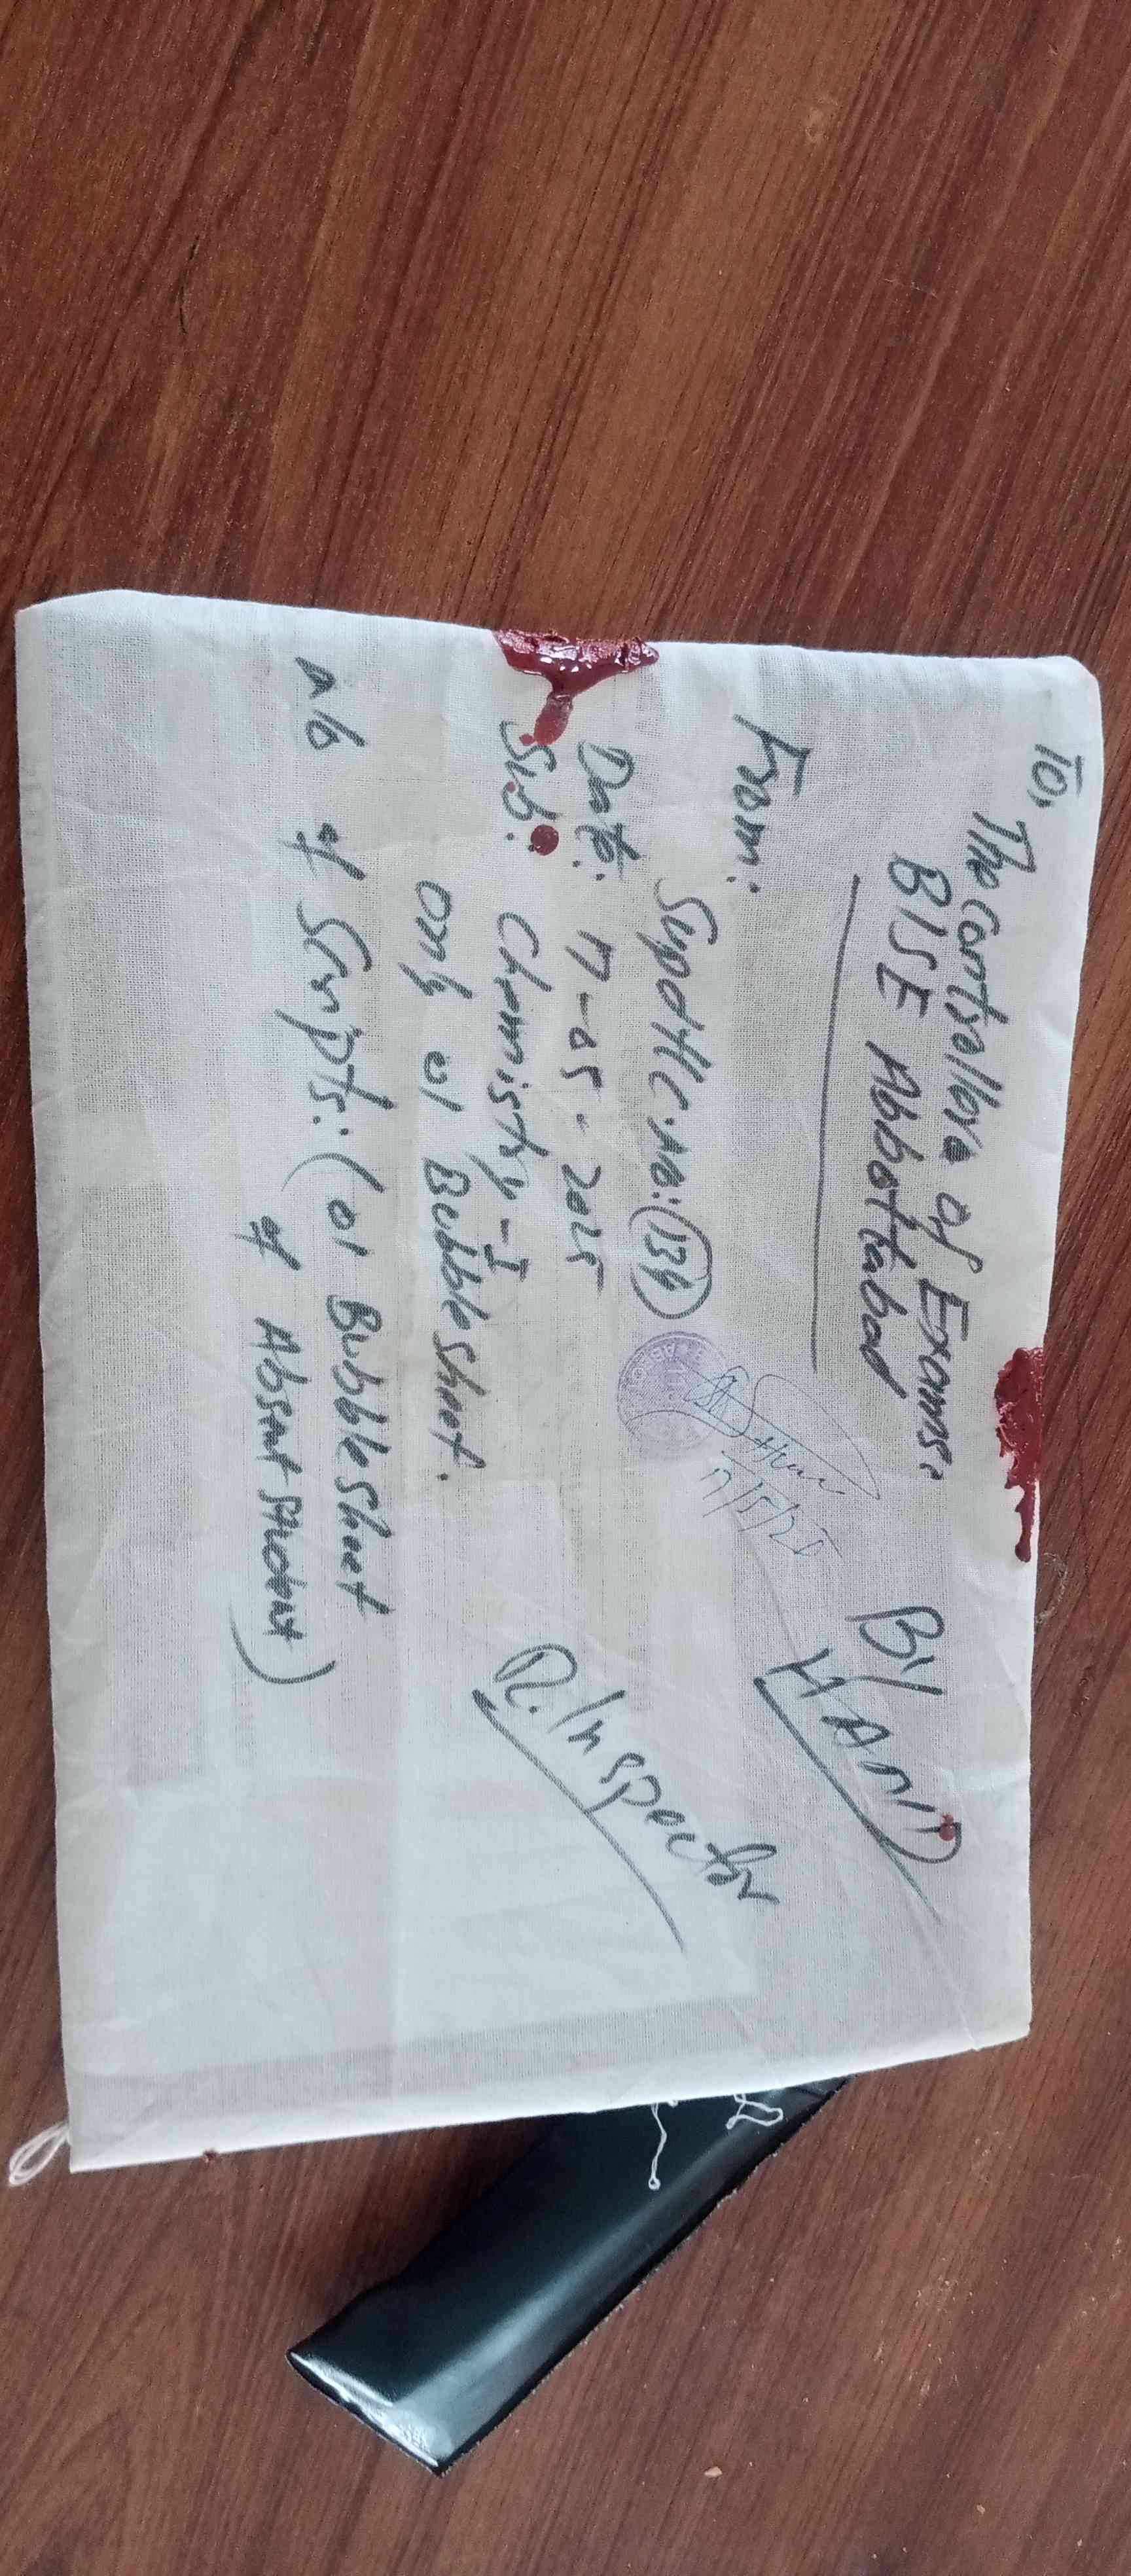 To,
The Controllera of Exams:
BISE Abbottabad
BY
HAND
From:
Supdtt C.no: 134
17/5/25
Date: 17-05-2025
Sub: Chemistry-I
R.Inspector
only 01 Bubble sheet.
No of Scripts: (01 Bubble sheet
of Absent student)